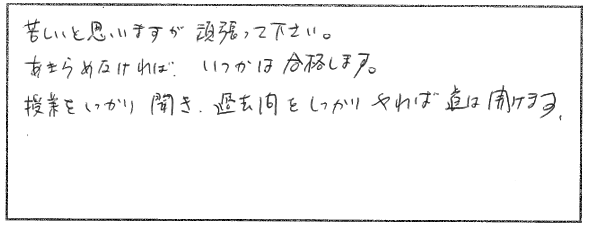 苦しいと思いますが頑張って下さい。
あきらめなければ、いつかは合格します。
授業をしっかり聞き、過去問をしっかりやれば道は開けます。